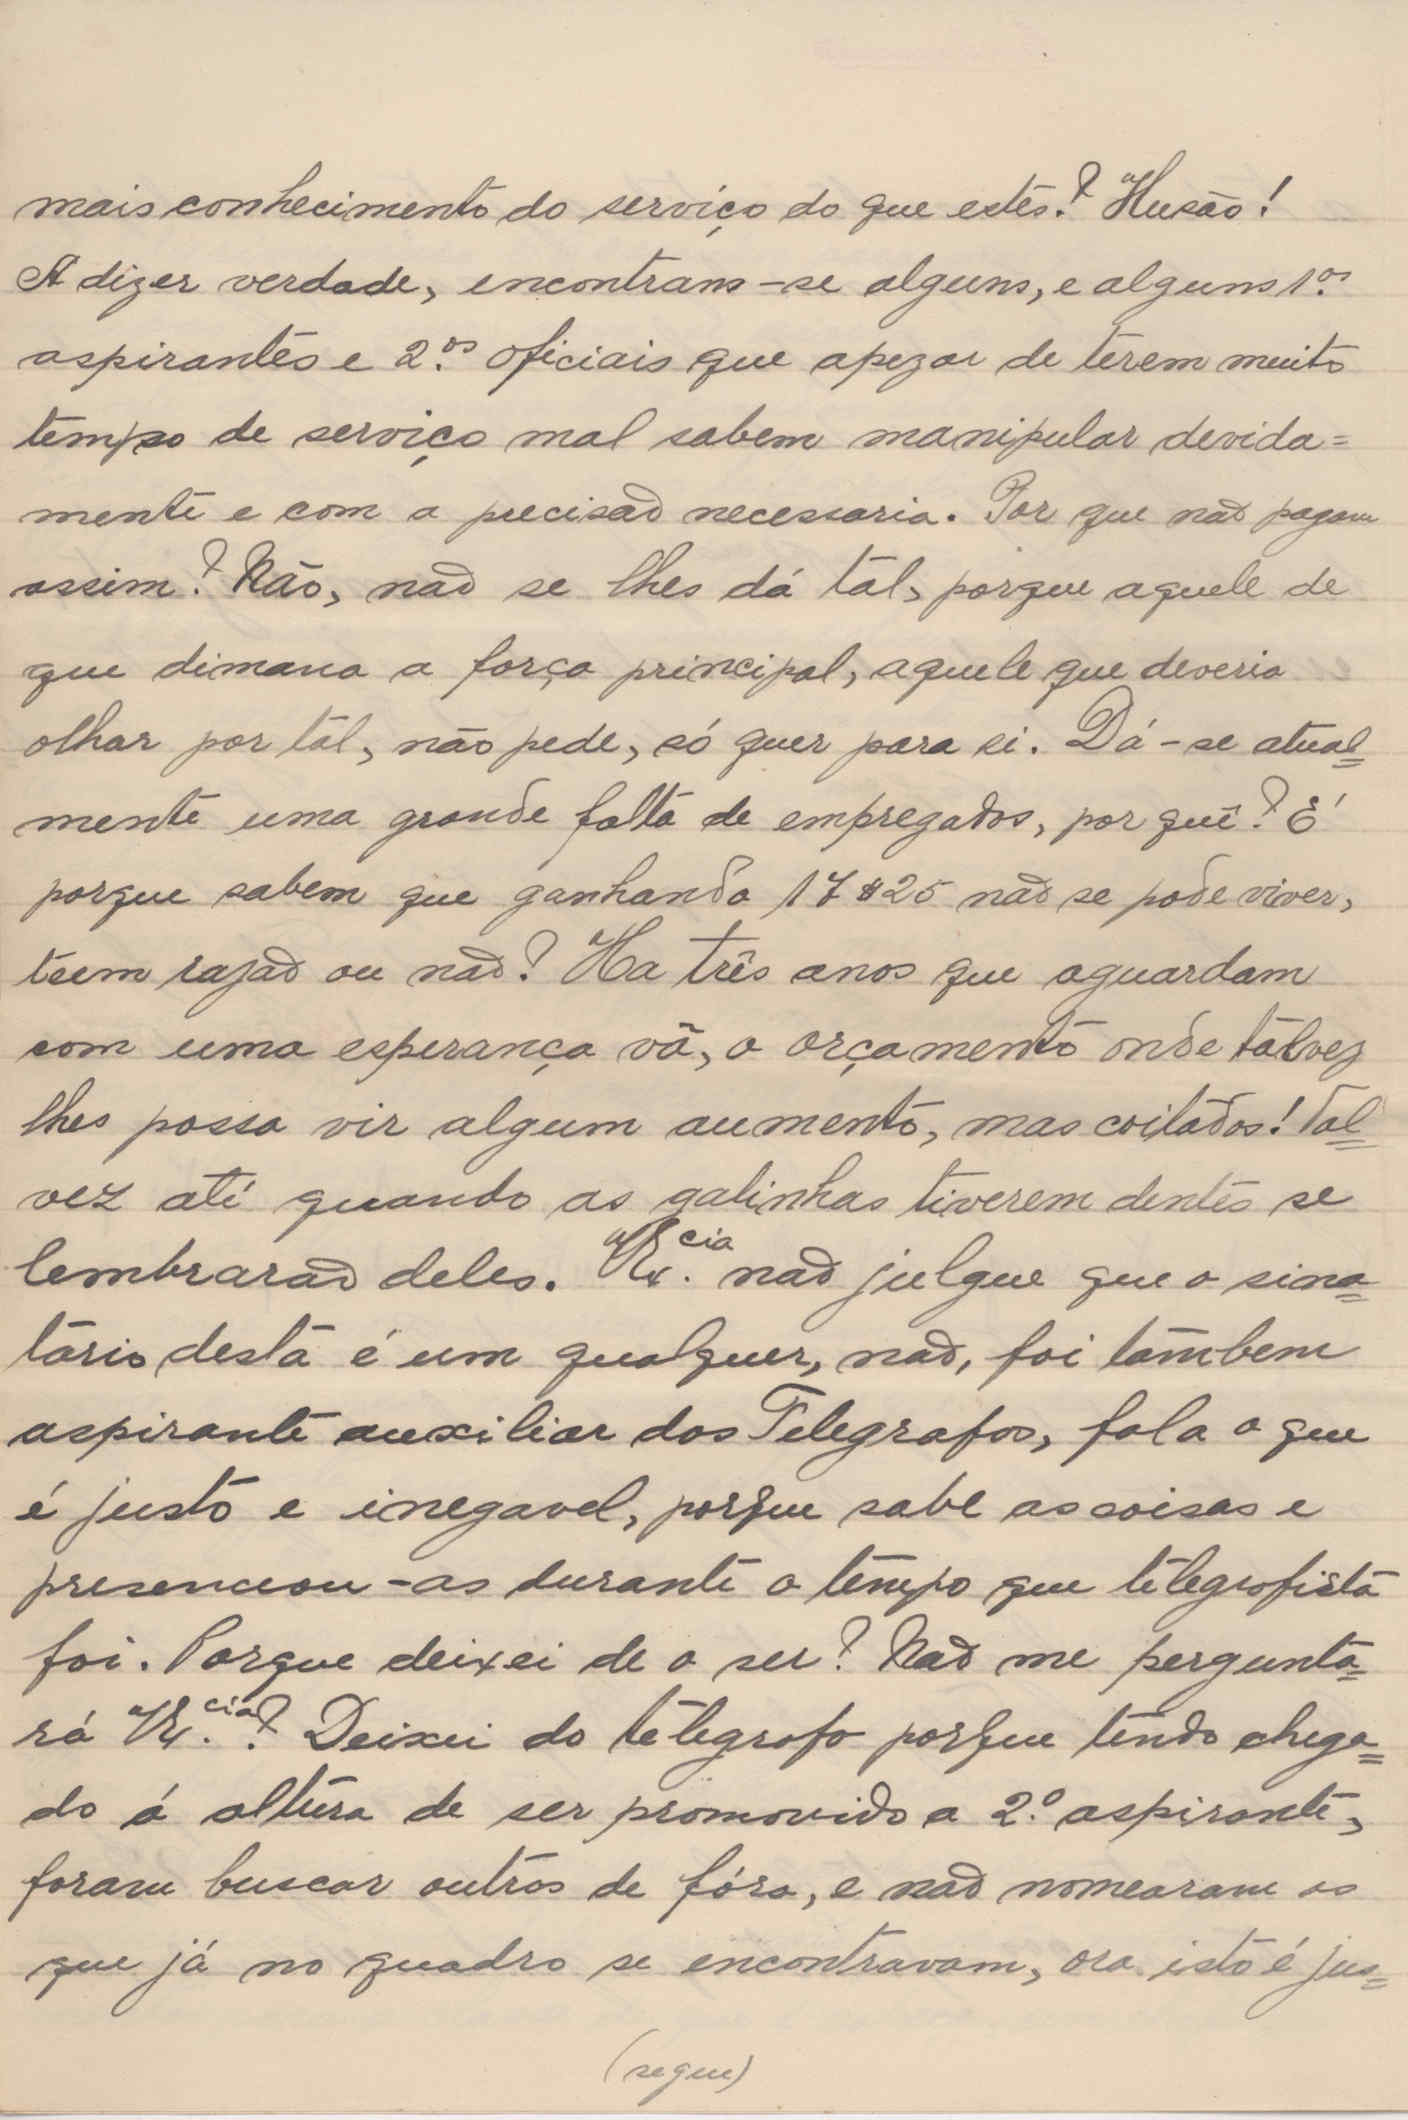 mais conhecimento do serviço do que estes? Ilusão!
A dizer verdade, encontram-se alguns, e alguns 1.os
aspirantes e 2.os oficiais que apezar de terem muito
tempo de serviço mal sabem manipular devida=
mente e com a precisaõ necessaria. Por que naõ pagam
assim? Não, naõ se lhes dá tal, porque aquele de
que dimana a força principal, aquele que deveria
olhar por tal, não pede, só quer para si. Dá-se atual=
mente uma grande falta de empregados, por quê? É
porque sabem que ganhando 17$25 naõ se pode viver,
teem razaõ ou naõ? Ha três anos que aguardam
com uma esperança vã, o orçamento onde talvez
lhes possa vir algum aumento, mas coitados! Tal=
vez até quando as galinhas tiverem dentes se
lembraraõ deles. V.Ex.cia naõ julgue que o sina=
tario desta é um qualquer, naõ, foi tambem
aspirante auxiliar dos Telegrafos, fala o que
é justo e inegavel, porque sabe as coisas e
presenceou-as durante o tempo que telegrafista
foi. Porque deixei de o ser? Naõ me pergunta=
rá V.Ex.cia? Deixei do telegrafo porque tendo chega=
do á altura de ser promovido a 2.º aspirante,
foram buscar outros de fóra, e naõ nomearam os
que já no quadro se encontravam, ora isto é jus=
(segue)